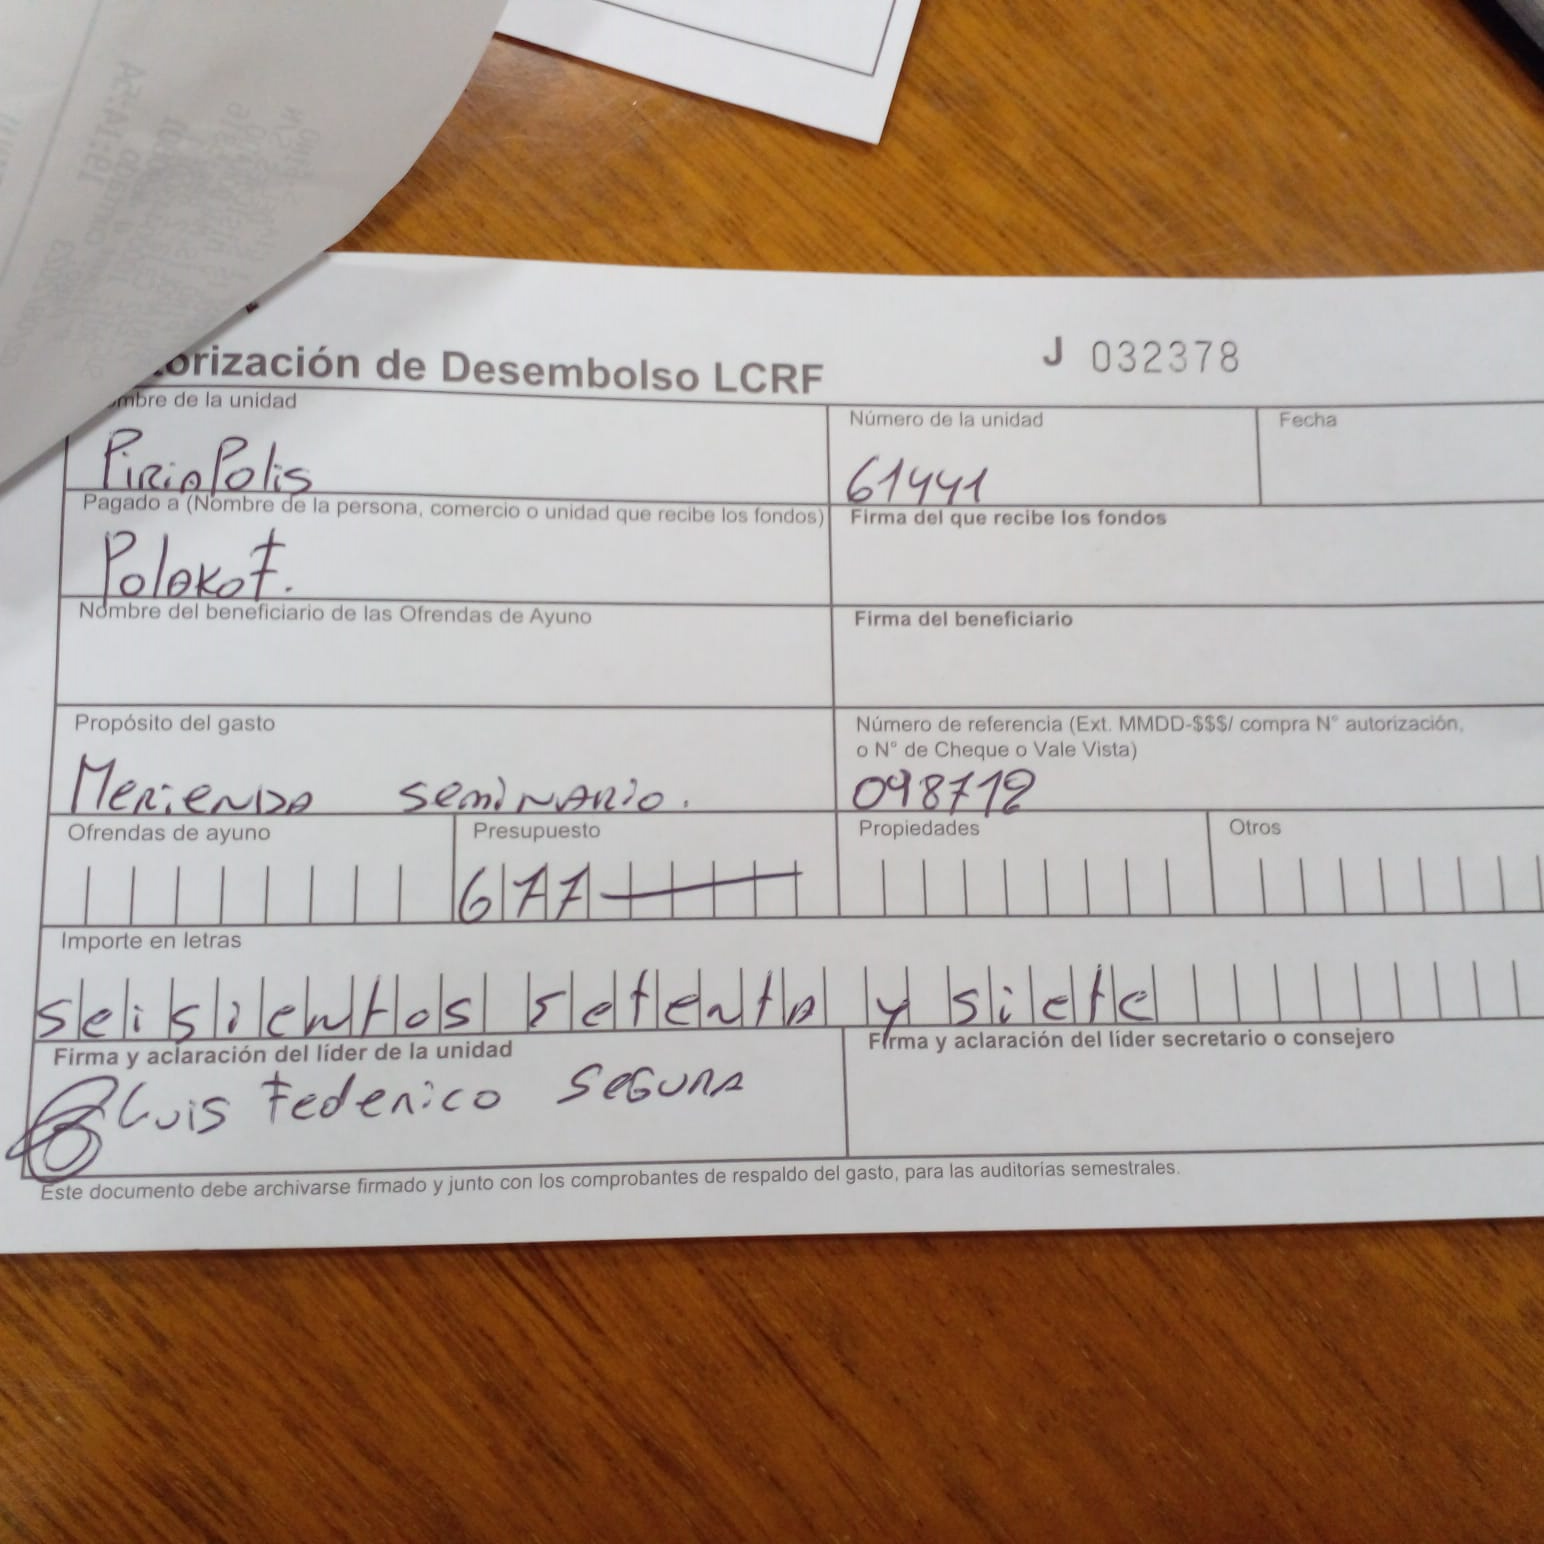 orización de Desembolso LCRF J 032378
mbre de la unidad Número de la unidad Fecha
PiriaPolis 61441
Pagado a (Nombre de la persona, comercio o unidad que recibe los fondos) Firma del que recibe los fondos
Polakof.
Nombre del beneficiario de las Ofrendas de Ayuno Firma del beneficiario
Propósito del gasto Número de referencia (Ext. MMDD-$$$/ compra N° autorización,
o N° de Cheque o Vale Vista)
Merienda seminario. 098712
Ofrendas de ayuno Presupuesto Propiedades Otros
677
Importe en letras
seisientos setenta y siete
Firma y aclaración del líder de la unidad Firma y aclaración del líder secretario o consejero
Luis Federico Segura
Este documento debe archivarse firmado y junto con los comprobantes de respaldo del gasto, para las auditorías semestrales.